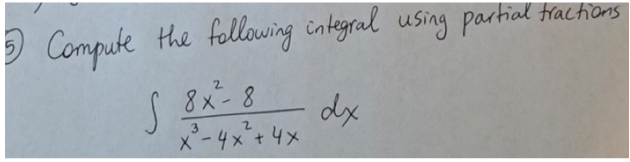 5) Compute the following integral using partial fractions
∫ (8x² - 8)/(x³ - 4x² + 4x) dx